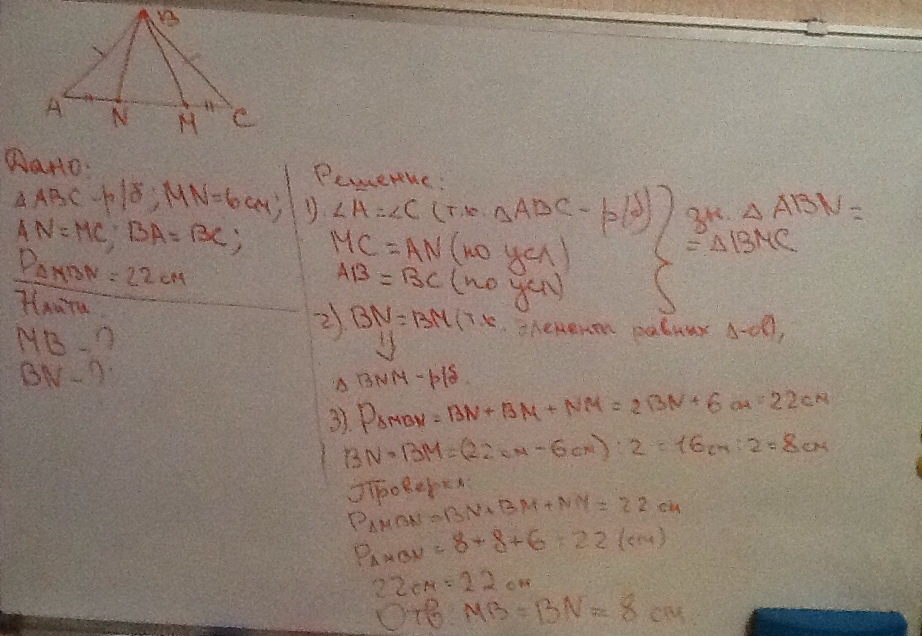 B
A N M C
Дано:
△ABC - р/б; MN=6см;
AN=MC; BA=BC;
P△MBN=22см
Найти
MB-?
BN-?
Решение:
1). ∠A=∠C (т.к. △ABC - р/б)
MC=AN (по усл)
AB=BC (по усл)
зн. △ABN=
=△BMC
2). BN=BM (т.к. элемент равных △-ов),
⇓
△BNM-р/б.
3). P△MBN=BN+BM+NM=2BN+6см=22см
BN=BM=(22см-6см):2=16см:2=8см
Проверка:
P△MBN=BN+BM+NM=22см
P△MBN=8+8+6=22(см)
22см=22см
Отв: MB=BN=8см